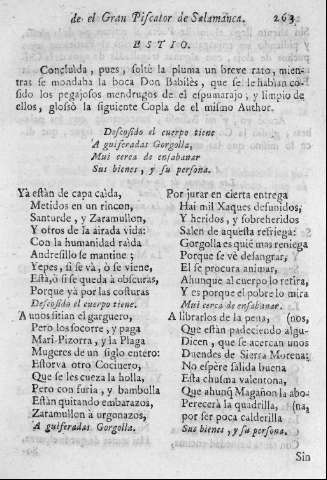 de el Gran Piscator de Salamanca. 263
ESTIO.
Concluìda, pues, soltè la pluma un breve rato, mien-
tras se mondaba la boca Don Babilès, que se le habian co-
sido los pegajosos mendrugos de el espumarajo, y limpio de
ellos, glossò la siguiente Copla de el mismo Author.
Descosido el cuerpo tiene
A guiseradas Gorgolla,
Mui cerca de ensabanar
Sus bienes, y su persona.
Yà estàn de capa caìda,
Metidos en un rincon,
Santurde, y Zaramullon,
Y otros de la airada vida:
Con la humanidad raìda
Andresillo se mantine;
Yepes, si se và, ò se viene,
Està, ò si se queda à obscuras,
Porque yà por las costuras
Descosido el cuerpo tiene.
A unos sitian el garguero,
Pero los socorre, y paga
Mari-Pizorra, y la Plaga
Mugeres de un siglo entero:
Estorva otro Cocinero,
Que se les cueza la holla,
Pero con furia, y bambolla
Estàn quitando embarazos,
Zaramullon à urgonazos,
A guiseradas Gorgolla.
Por jurar en cierta entrega
Hai mil Xaques defunidos,
Y heridos, y sobreheridos
Salen de aquesta refriega:
Gorgolla es quiè mas reniega
Porque se vè desangrar,
El se procura animar,
Ahunque al cuerpo lo retira,
Y es porque el pobre lo mira
Mui cerca de ensabanar.
A librarlos de la pena, (nos,
Que estàn padeciendo algu-
Dicen, que se acercan unos
Duendes de Sierra Morena;
No espere salida buena
Esta chusma valentona,
Que ahunq̃ Magañon la abo-
Perecerà la quadrilla, (na,
por ser poca calderilla
Sus bienes, y su persona.
Sin